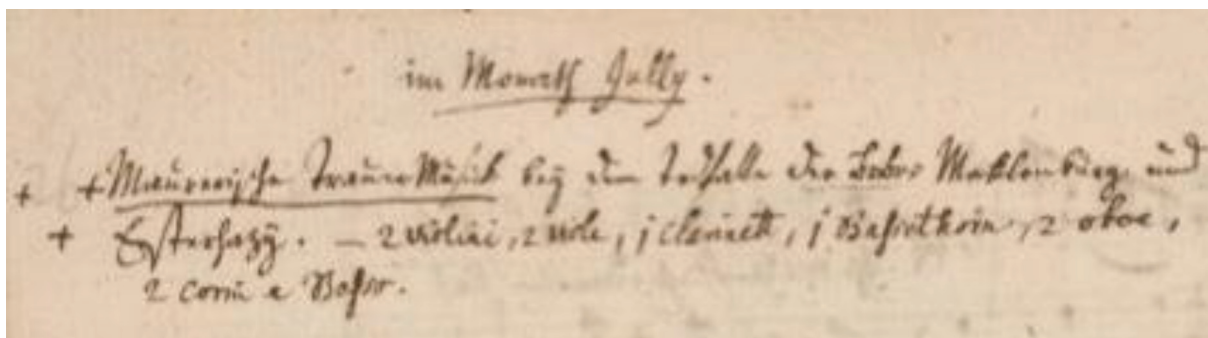 im Monath Jully.
+ + Maurerische Trauer Musik bey dem Todfalle der Brbr: Meklenburg und
+ Esterhazÿ. – 2 violini, 2 viole, 1 clarinett, 1 Bassethorn, 2 oboe,
2 corni e Basso.